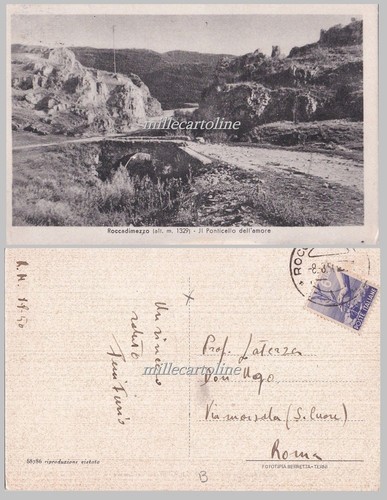 millecartoline
Roccadimezzo (alt. m. 1329) - Il Ponticello dell'amore
R. M.
ROC
-8.
POSTE ITALIANE
Un sincero
saluto
Prof. Laterza
Don Ugo
millecartoline
Via
(S. Cuore)
Roma
riproduzione vietata
FOTOTIPIA BERRETTA - TERNI
B